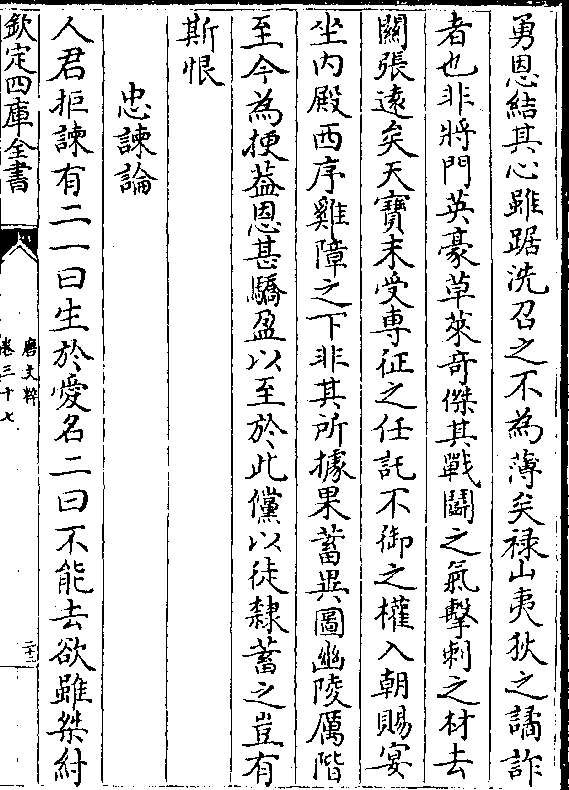 勇恩結其心雖踞洗召之不為薄矣禄山夷狄之譎詐
者也非將門英豪草萊奇傑其戰鬭之氣擊刺之材去
關張遠矣天寶末受專征之任託不御之權入朝賜宴
坐内殿西序雞障之下非其所據果蓄異圖幽陵厲階
至今為捩葢恩甚驕盈以至於此儻以徒隸蓄之豈有
斯恨
忠諫論
人君拒諫有二一曰生於愛名二曰不能去欲雖桀紂
欽定四庫全書
唐文粹
卷三十七
二十二